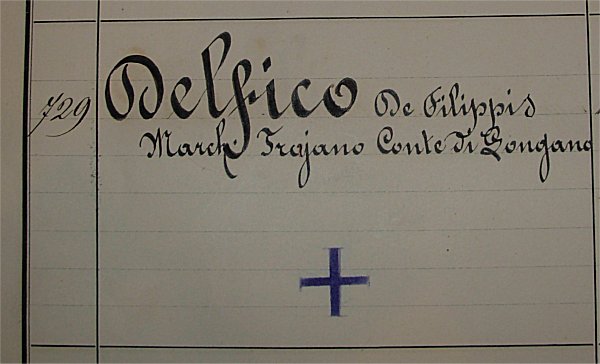 729 Delfico De Filippis
March. Trojano Conte Di Longano